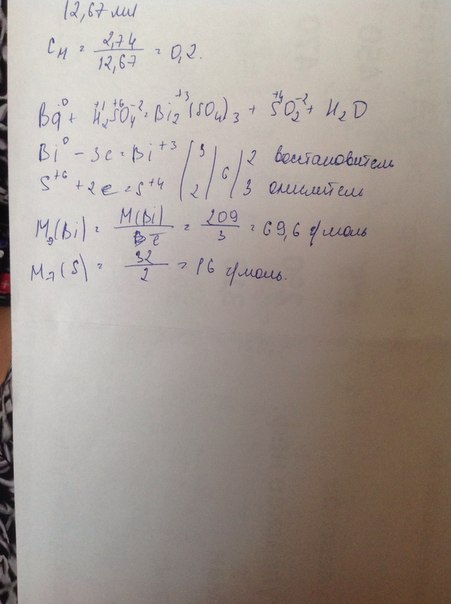 12,67 мл
Cм = 2,74 / 12,67 = 0,2.
Bi⁰ + H₂⁺¹S⁺⁶O₄⁻² = Bi₂⁺³(SO₄)₃ + S⁺⁴O₂⁻² + H₂O
Bi⁰ - 3e = Bi⁺³ | 3 | 6 | 2 восстановитель
S⁺⁶ + 2e = S⁺⁴ | 2 | | 3 окислитель
Mэ(Bi) = M(Bi) / 3ē = 209 / 3 = 69,6 г/моль
Mэ(S) = 32 / 2 = 16 г/моль.